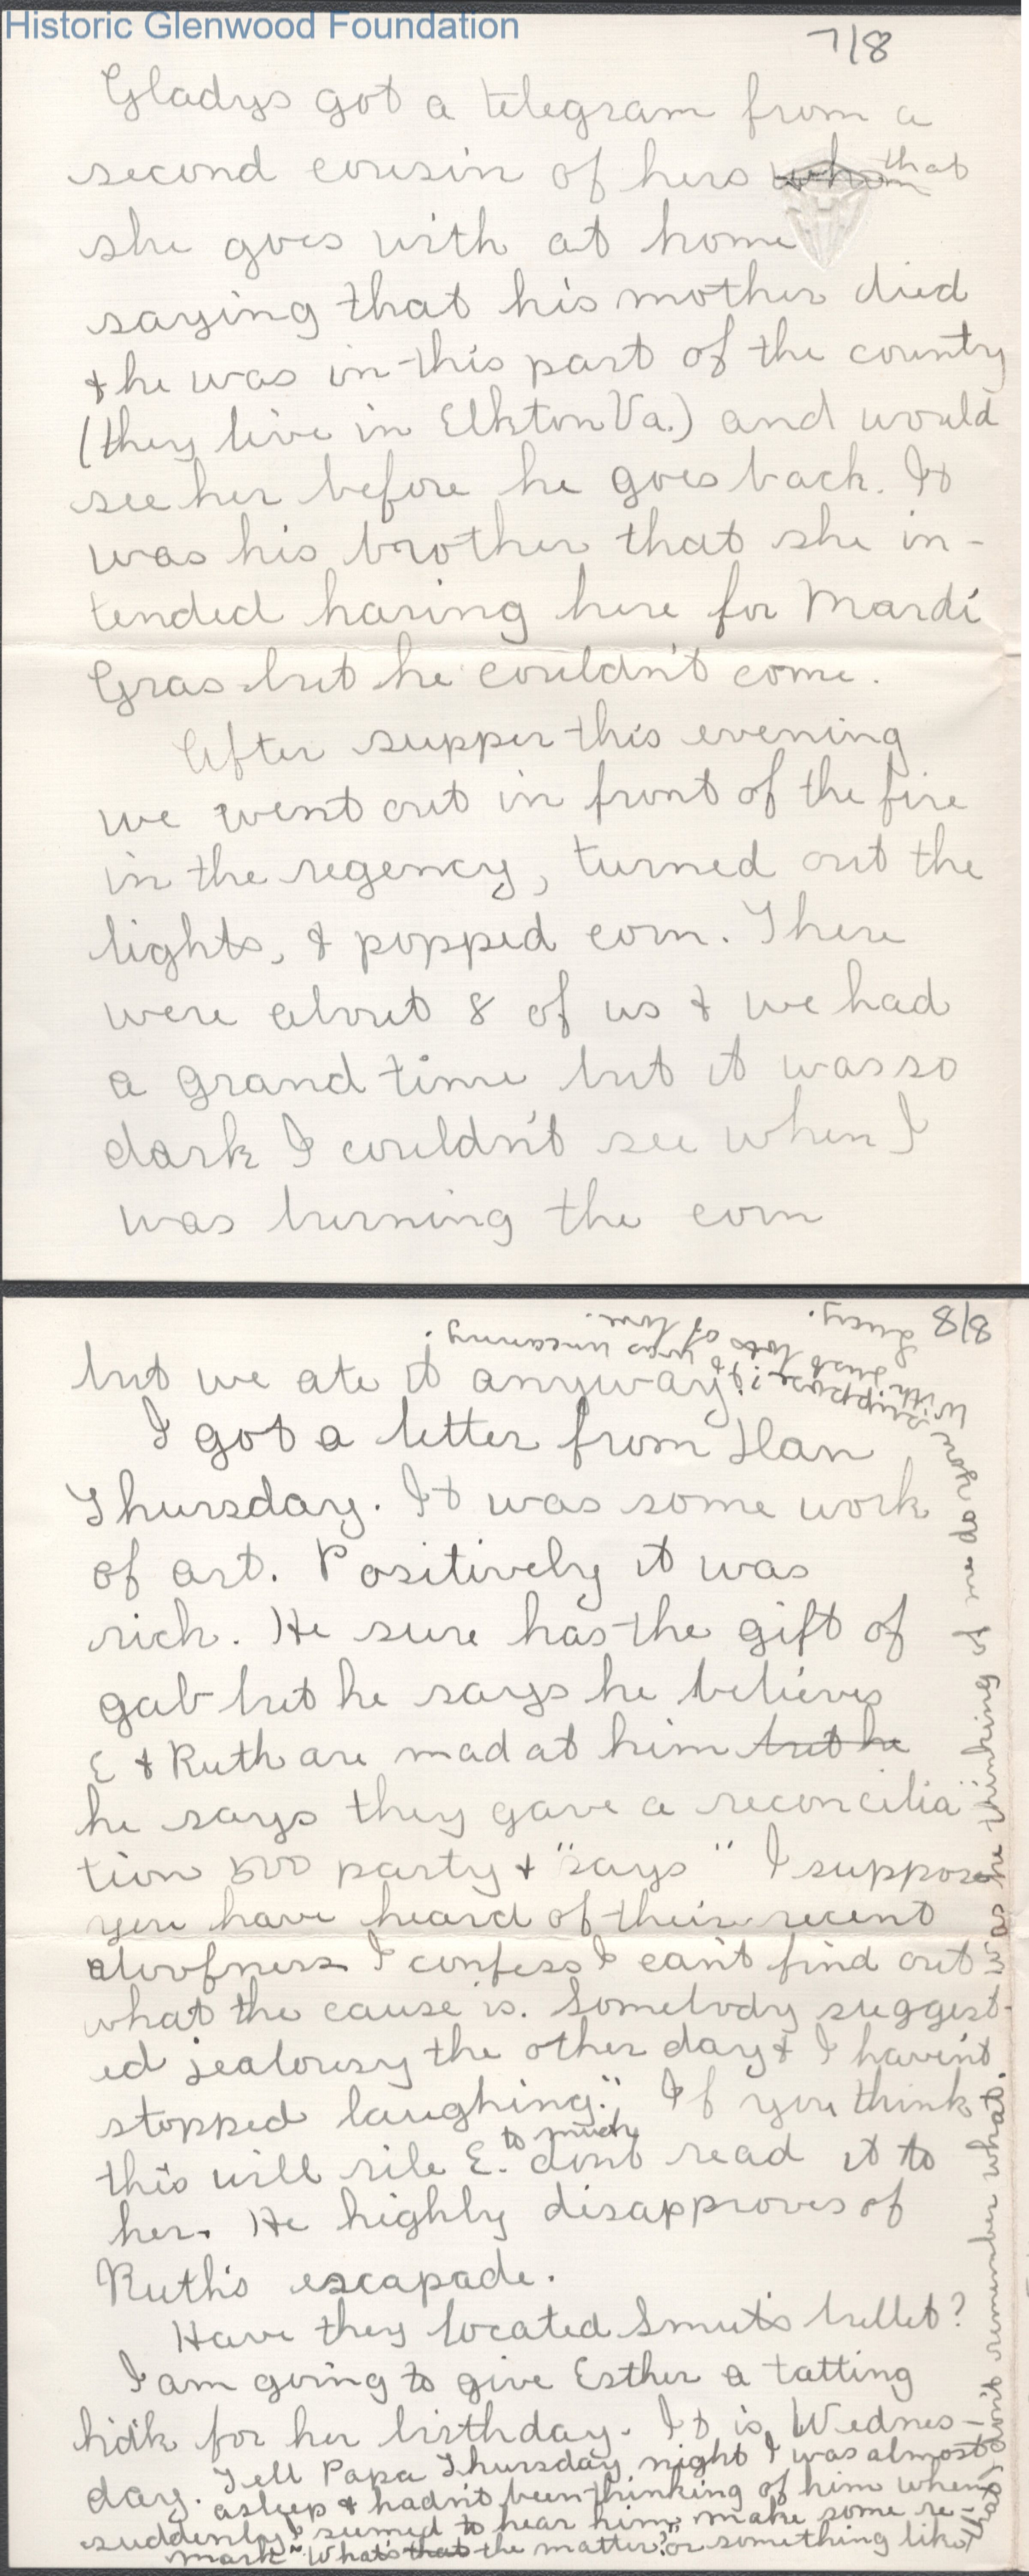 Historic Glenwood Foundation
7/8
Gladys got a telegram from a
second cousin of hers whom that
she goes with at home
saying that his mother died
& he was in this part of the country
(they live in Elkton Va.) and would
see her before he goes back. It
was his brother that she in-
tended having here for Mardi
Gras but he couldn't come.
After supper this evening
we went out in front of the fire
in the regency, turned out the
lights, & popped corn. There
were about 8 of us & we had
a grand time but it was so
dark I couldn't see when I
was burning the corn
8/8
but we ate it anyway.
I got a letter from Han
Thursday. It was some work
of art. Positively it was
rich. He sure has the gift of
gab but he says he believes
E & Ruth are mad at him but he
he says they gave a reconcilia
tion 500 party & "says" I suppose
you have heard of their recent
aloofness I confess I can't find out
what the cause is. Somebody suggest-
ed jealousy the other day & I haven't
stopped laughing." If you think
this will rile E. to much don't read it to
her. He highly disapproves of
Ruth's escapade.
Have they located Smut's bullet?
I am going to give Esther a tatting
hd'k for her birthday. It is Wednes-
day. Tell Papa Thursday night I was almost
asleep & hadn't been thinking of him when
suddenly I seemed to hear him make some re-
mark "What's that the matter?" or something like
that, don't remember what. Was he thinking of me do you
suppose? It was uncanny.
With just lots of love.
Lucy.